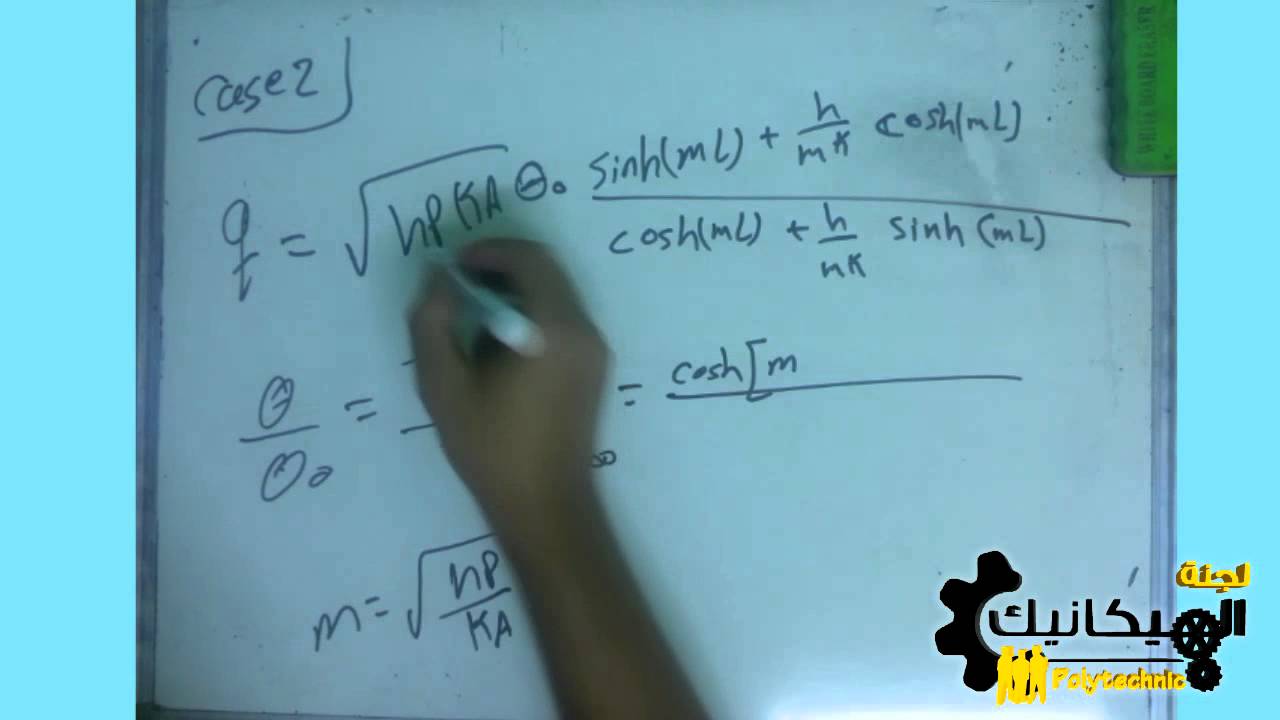 case 2
q = √hPKA θ₀ sinh(mL) + h/mK cosh(mL) / cosh(mL) + h/mK sinh(mL)
θ/θ₀ = ∞ = cosh[m
m = √hP/KA
WHITE BOARD ERASER
لجنة
الميكانيك
Polytechnic